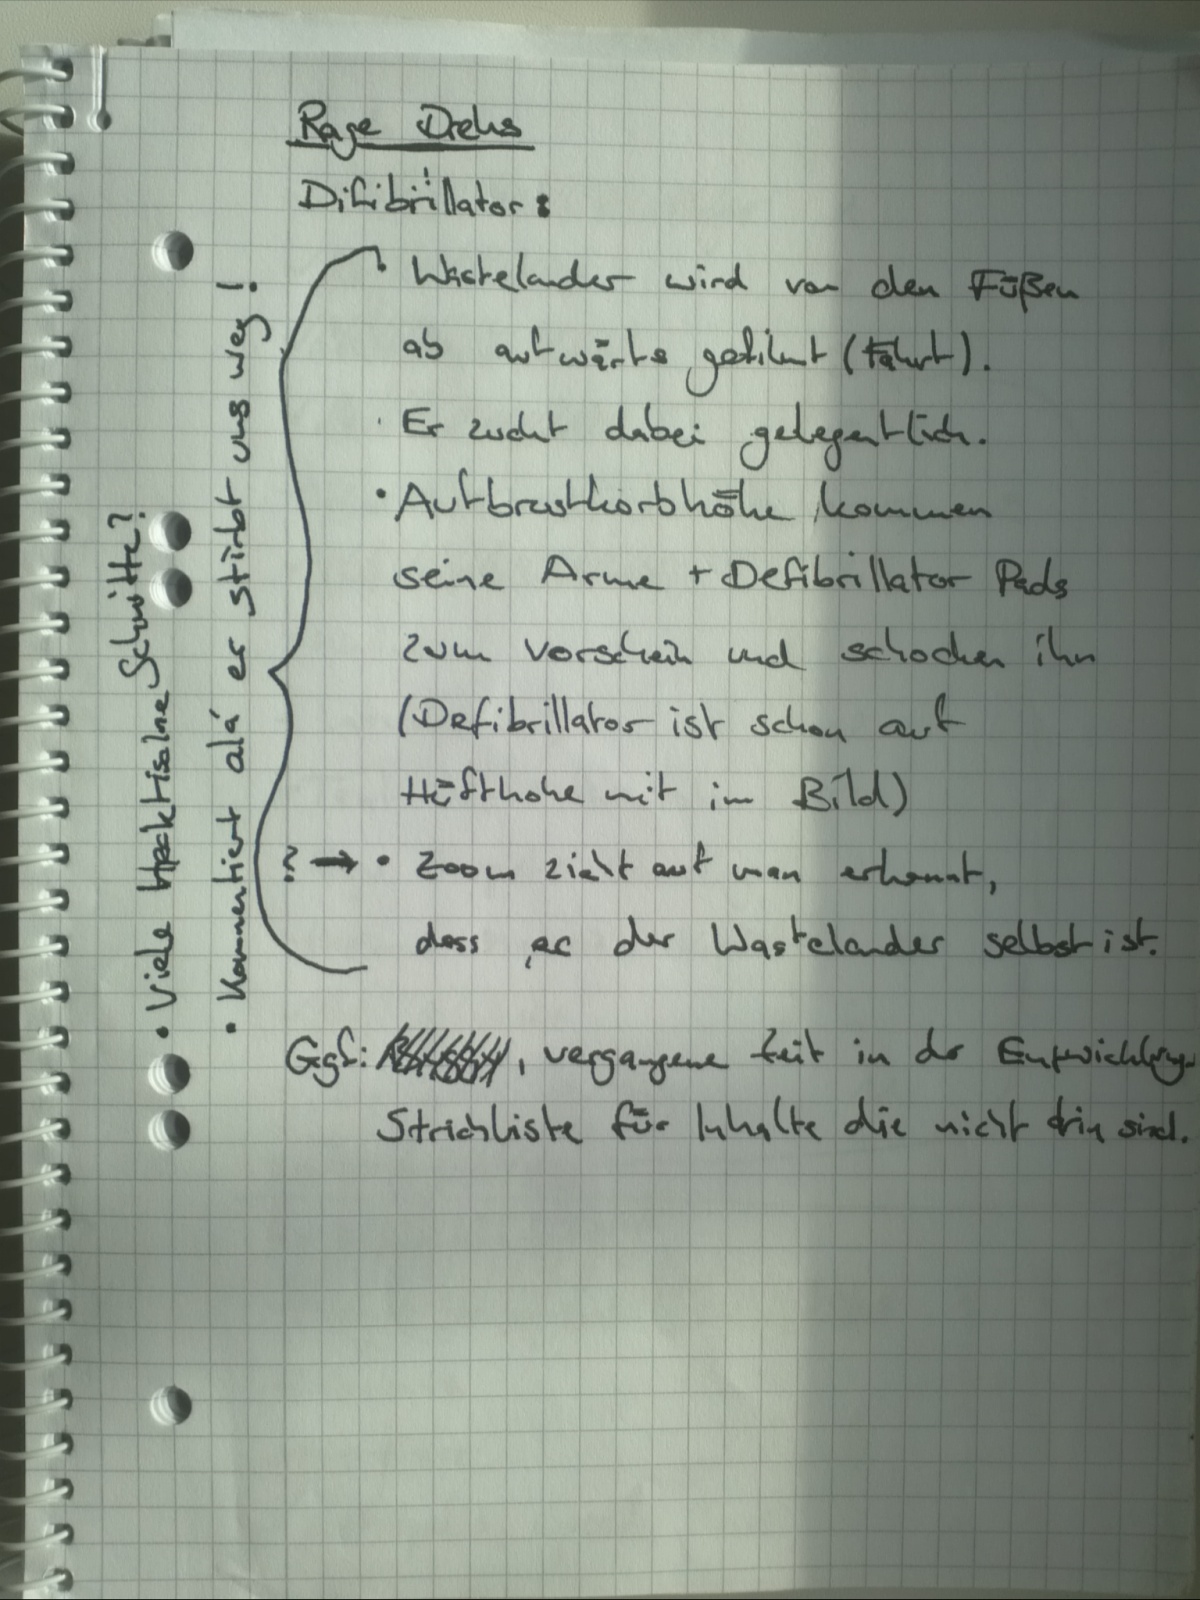 Rage Drehs
Difibrillator:
• Wastelander wird von den Füßen
ab aufwärts gefilmt (Fahrt).
• Er zuckt dabei gelegentlich.
• Auf brustkorbhöhe kommen
seine Arme + Defibrillator Pads
zum vorschein und schocken ihn
(Defibrillator ist schon auf
Hüfthöhe mit im Bild)
? → • Zoom zieht auf man erkennt,
dass er der Wastelander selbst ist.
Ggf: , vergangene Zeit in der Entwicklung
Strichliste für Inhalte die nicht drin sind.
• Viele Hecktische Schnitte?
• Kommentiert alá er stirbt uns weg!